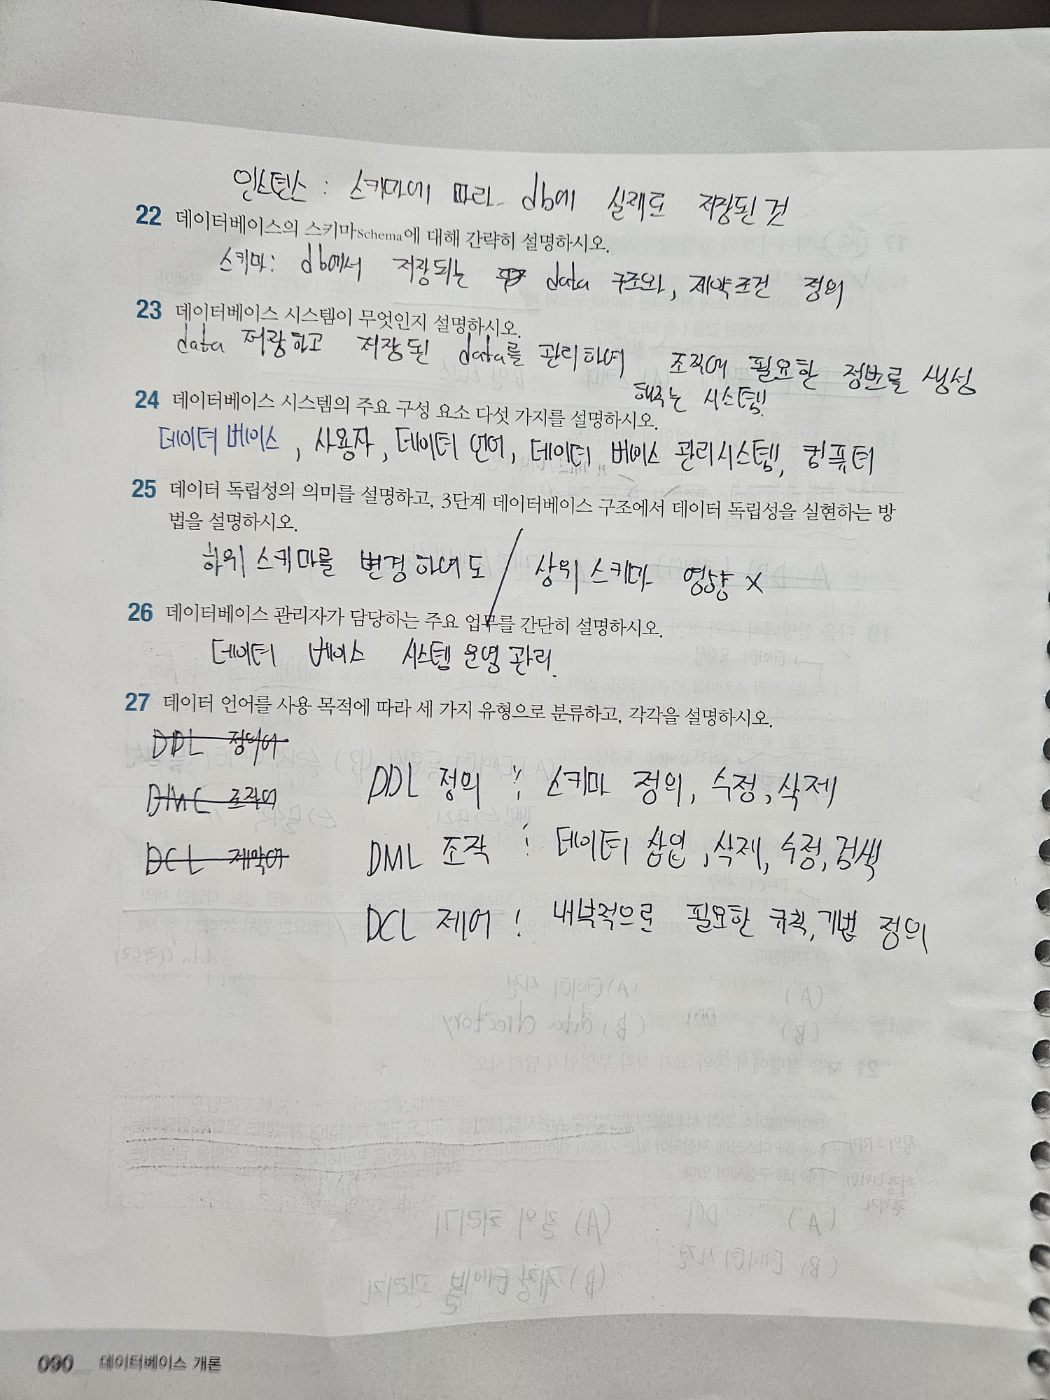 인스턴스 : 스키마에 따라 db에 실제로 저장된 것
22 데이터베이스의 스키마schema에 대해 간략히 설명하시오.
스키마: db에서 저장되는 data 구조와, 제약조건 정의
23 데이터베이스 시스템이 무엇인지 설명하시오.
data 저장하고 저장된 data를 관리하여 조직에 필요한 정보를 생성
해주는 시스템!
24 데이터베이스 시스템의 주요 구성 요소 다섯 가지를 설명하시오.
데이터 베이스, 사용자, 데이터 언어, 데이터 베이스 관리시스템, 컴퓨터
25 데이터 독립성의 의미를 설명하고, 3단계 데이터베이스 구조에서 데이터 독립성을 실현하는 방
법을 설명하시오.
하위 스키마를 변경하여도 / 상위 스키마 영향 x
26 데이터베이스 관리자가 담당하는 주요 업무를 간단히 설명하시오.
데이터 베이스 시스템 운영 관리.
27 데이터 언어를 사용 목적에 따라 세 가지 유형으로 분류하고, 각각을 설명하시오.
DDL 정의어
DML 조작어
DCL 제약어
DDL 정의 : 스키마 정의, 수정, 삭제
DML 조작 : 데이터 삽입, 삭제, 수정, 검색
DCL 제어 : 내부적으로 필요한 규칙, 기법 정의
090 데이터베이스 개론